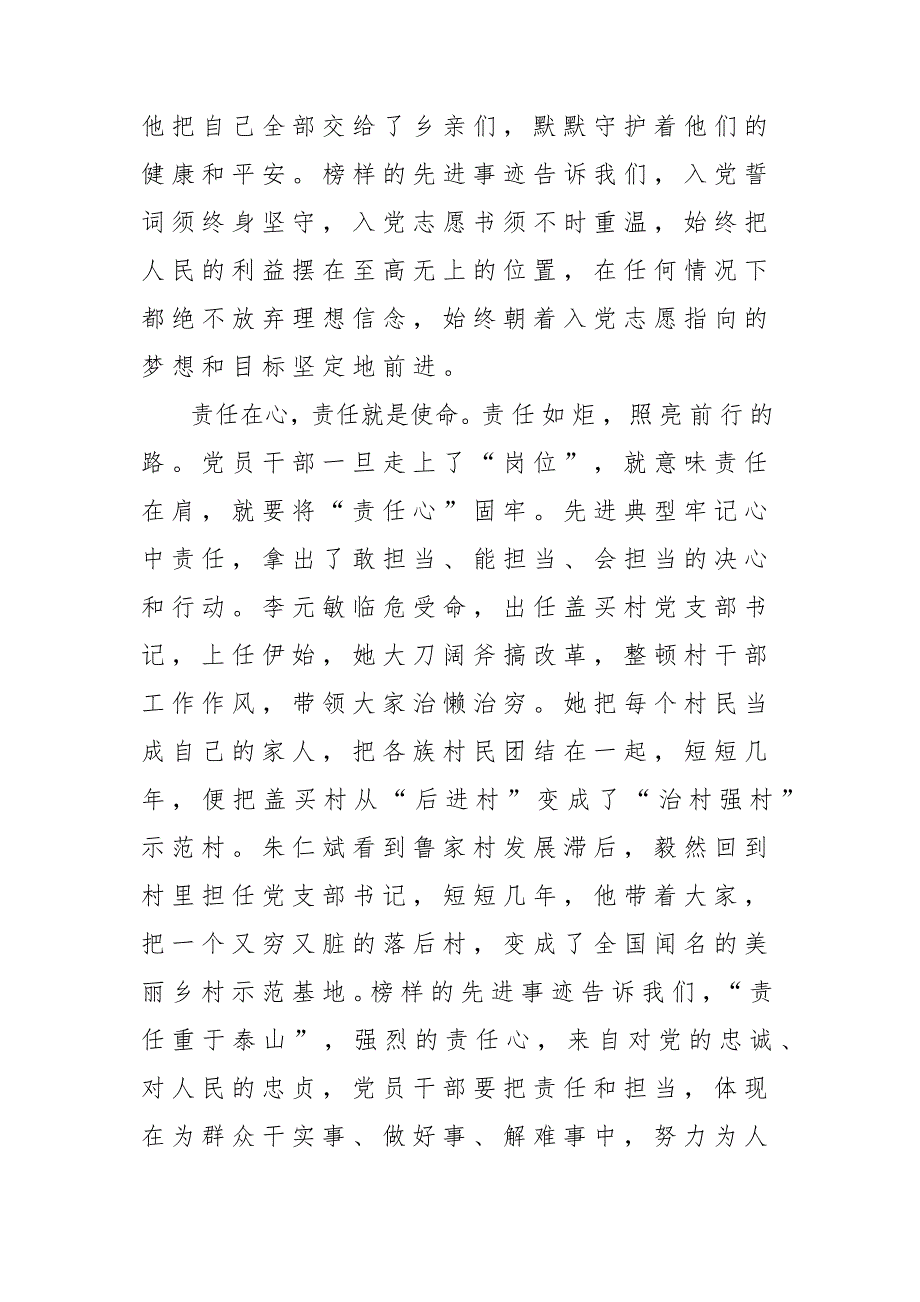 他把自己全部交给了乡亲们，默默守护着他们的
健康和平安。榜样的先进事迹告诉我们，入党誓
词须终身坚守，入党志愿书须不时重温，始终把
人民的利益摆在至高无上的位置，在任何情况下
都绝不放弃理想信念，始终朝着入党志愿指向的
梦想和目标坚定地前进。
责任在心，责任就是使命。责任如炬，照亮前行的
路。党员干部一旦走上了“岗位”，就意味责任
在肩，就要将“责任心”固牢。先进典型牢记心
中责任，拿出了敢担当、能担当、会担当的决心
和行动。李元敏临危受命，出任盖买村党支部书
记，上任伊始，她大刀阔斧搞改革，整顿村干部
工作作风，带领大家治懒治穷。她把每个村民当
成自己的家人，把各族村民团结在一起，短短几
年，便把盖买村从“后进村”变成了“治村强村”
示范村。朱仁斌看到鲁家村发展滞后，毅然回到
村里担任党支部书记，短短几年，他带着大家，
把一个又穷又脏的落后村，变成了全国闻名的美
丽乡村示范基地。榜样的先进事迹告诉我们，“责
任重于泰山”，强烈的责任心，来自对党的忠诚、
对人民的忠贞，党员干部要把责任和担当，体现
在为群众干实事、做好事、解难事中，努力为人